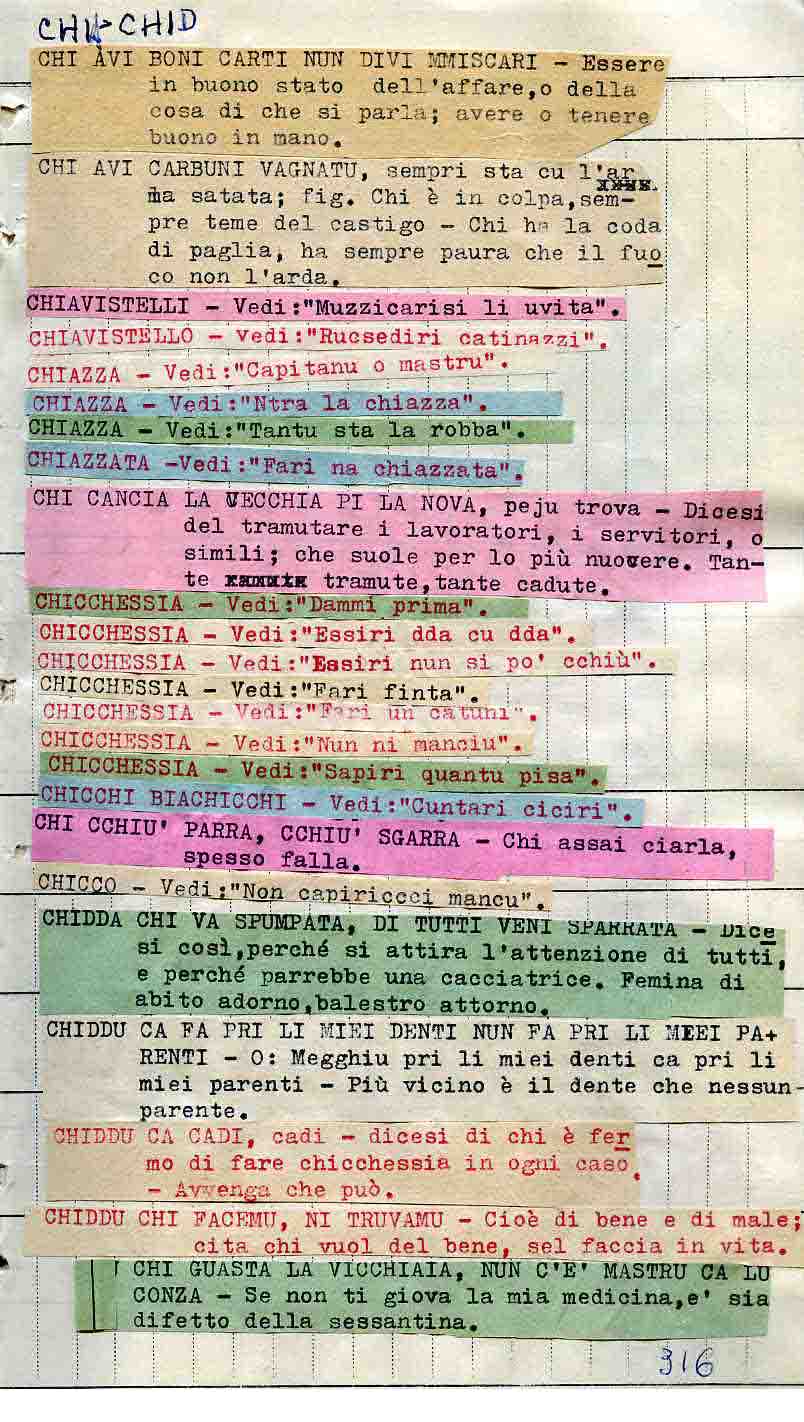 CHI-CHID
CHI AVI BONI CARTI NUN DIVI MMISCARI - Essere
in buono stato dell'affare,o della
cosa di che si parla; avere o tenere
buono in mano.
CHI AVI CARBUNI VAGNATU, sempri sta cu l'ar
ma satata; fig. Chi è in colpa,sem-
pre teme del castigo - Chi ha la coda
di paglia, ha sempre paura che il fuo
co non l'arda.
CHIAVISTELLI - Vedi:"Muzzicarisi li uvita".
CHIAVISTELLO - Vedi:"Rucsediri catinazzi".
CHIAZZA - Vedi:"Capitanu o mastru".
CHIAZZA - Vedi:"Ntra la chiazza".
CHIAZZA - Vedi:"Tantu sta la robba".
CHIAZZATA -Vedi:"Fari na chiazzata".
CHI CANCIA LA VECCHIA PI LA NOVA, peju trova - Dicesi
del tramutare i lavoratori, i servitori, o
simili; che suole per lo più nuovere. Tan-
te tramute,tante cadute.
CHICCHESSIA - Vedi:"Dammi prima".
CHICCHESSIA - Vedi:"Essiri dda cu dda".
CHICCHESSIA - Vedi:"Essiri nun si po' cchiù".
CHICCHESSIA - Vedi:"Fari finta".
CHICCHESSIA - Vedi:"Fari un catuni".
CHICCHESSIA - Vedi:"Nun ni manciu".
CHICCHESSIA - Vedi:"Sapiri quantu pisa".
CHICCHI BIACHICCHI - Vedi:"Cuntari ciciri".
CHI CCHIU' PARRA, CCHIU' SGARRA - Chi assai ciarla,
spesso falla.
CHICCO - Vedi:"Non capiricci mancu".
CHIDDA CHI VA SPUMPATA, DI TUTTI VENI SPARRATA - Dice
si così,perché si attira l'attenzione di tutti,
e perché parrebbe una cacciatrice. Femina di
abito adorno,balestro attorno.
CHIDDU CA FA PRI LI MIEI DENTI NUN FA PRI LI MIEI PA+
RENTI - O: Megghiu pri li miei denti ca pri li
miei parenti - Più vicino è il dente che nessun-
parente.
CHIDDU CA CADI, cadi - dicesi di chi è fer
mo di fare chicchessia in ogni caso.
- Avvenga che può.
CHIDDU CHI FACEMU, NI TRUVAMU - Cioè di bene e di male;
cita chi vuol del bene, sel faccia in vita.
CHI GUASTA LA VICCHIAIA, NUN C'E' MASTRU CA LU
CONZA - Se non ti giova la mia medicina,e' sia
difetto della sessantina.
316